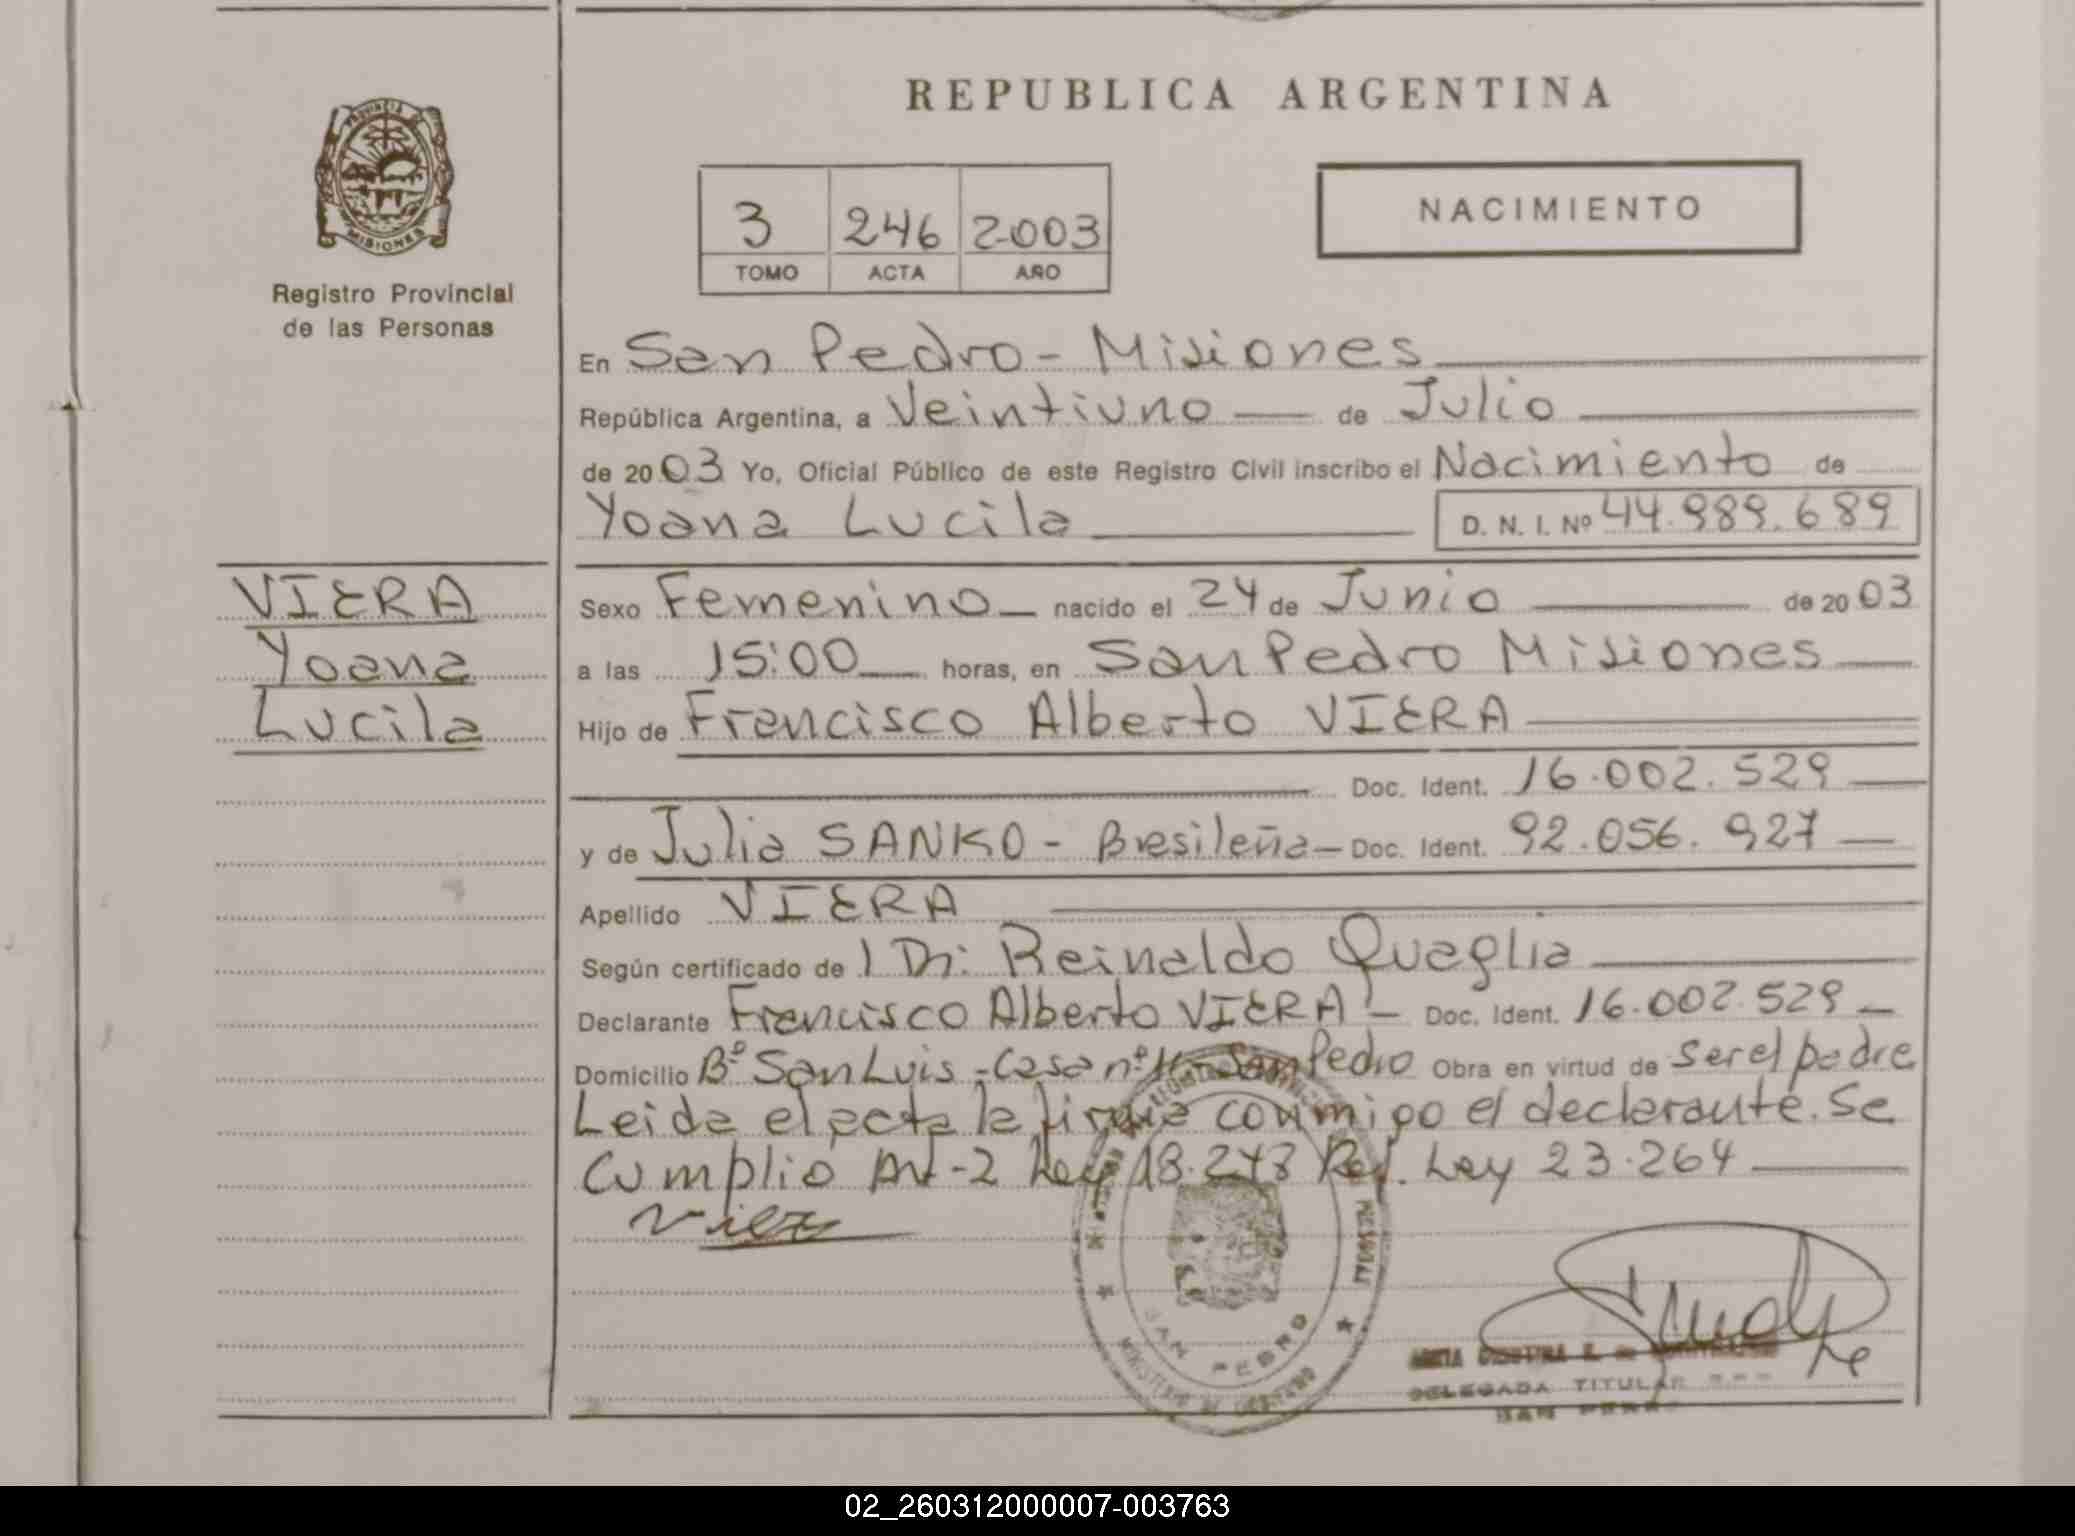 REPUBLICA ARGENTINA
PROVINCIA DE
MISIONES
Registro Provincial
de las Personas
3 246 2003
TOMO ACTA AÑO
NACIMIENTO
En San Pedro - Misiones
República Argentina, a Veintiuno de Julio
de 2003 Yo, Oficial Público de este Registro Civil inscribo el Nacimiento de
Yoana Lucila D. N. I. Nº 44.989.689
VIERA
Yoana
Lucila
Sexo Femenino nacido el 24 de Junio de 2003
a las 15:00 horas, en San Pedro Misiones
Hijo de Francisco Alberto VIERA
Doc. Ident. 16.002.529
y de Julia SANKO - Brasileña - Doc. Ident. 92.056.927
Apellido VIERA
Según certificado de Dr. Reinaldo Quaglia
Declarante Francisco Alberto VIERA - Doc. Ident. 16.002.529
Domicilio Bº San Luis - Casa nº San Pedro Obra en virtud de ser el padre
Leida el acta la firma conmigo el declarante. Se
Cumplio Art-2 Ley 18.248 Ref. Ley 23.264
SAN PEDRO
MINISTERIO DE GOBIERNO
DELEGADA TITULAR
SAN PEDRO
02_260312000007-003763